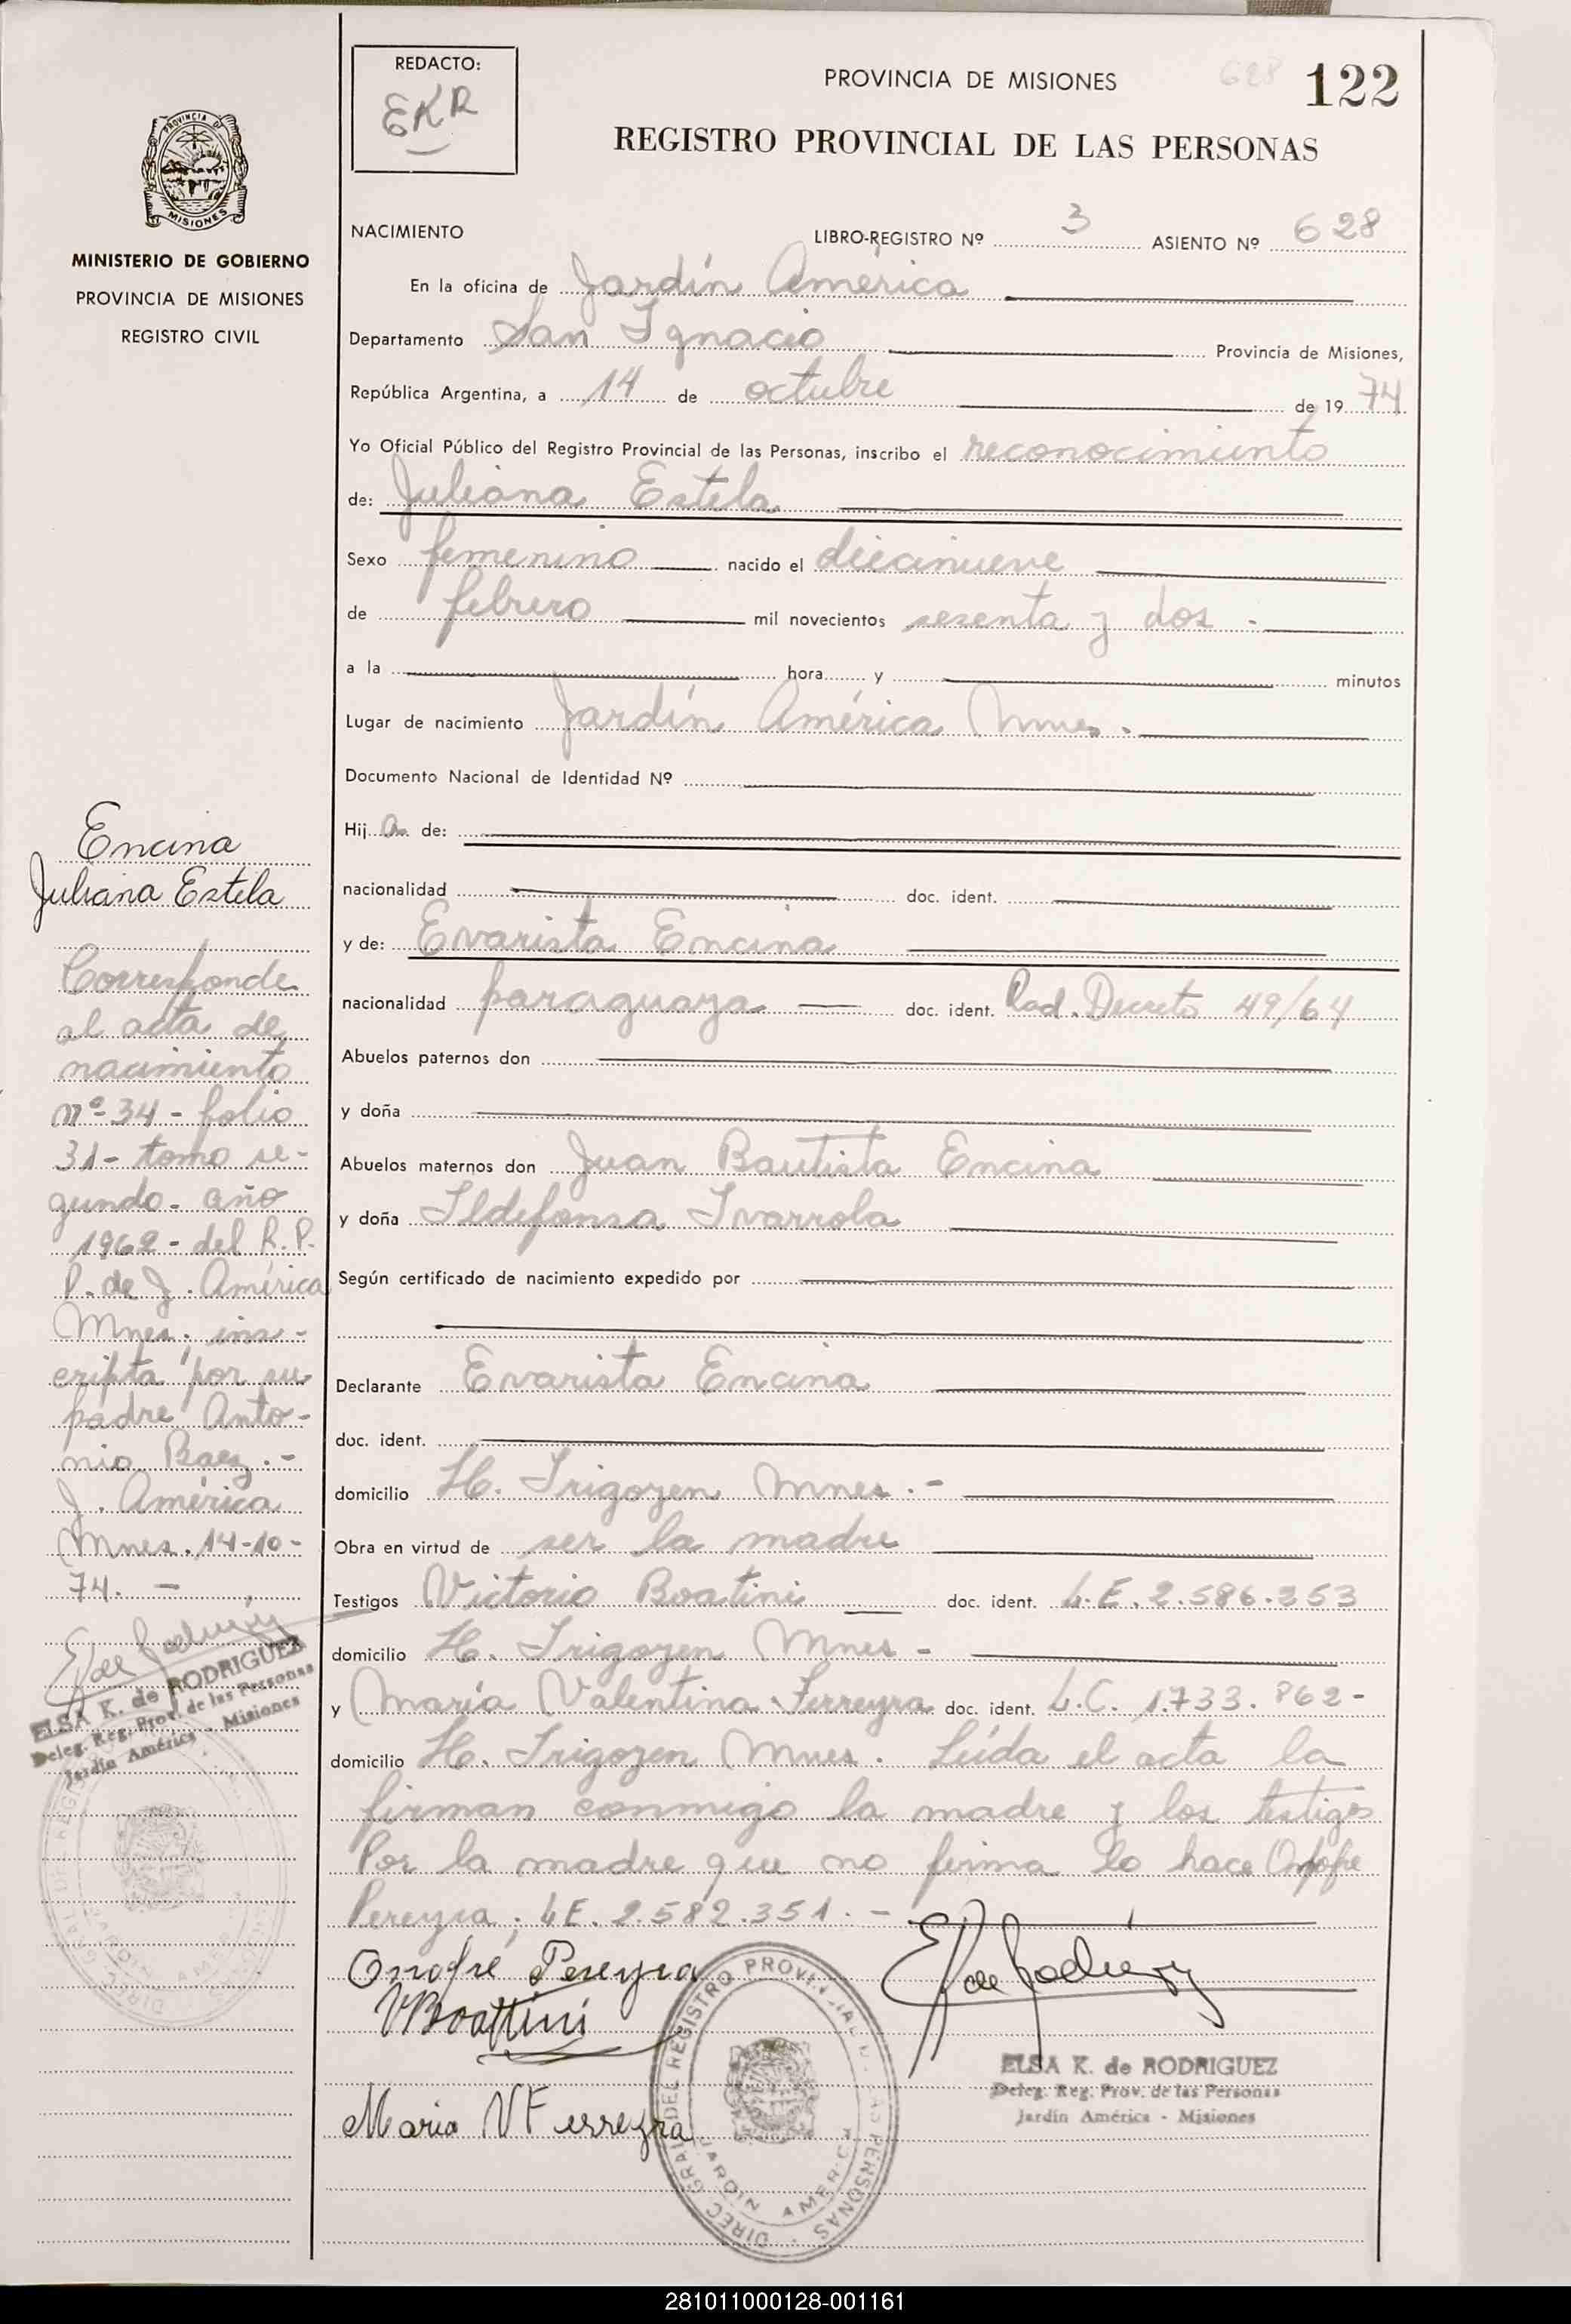 REDACTO:
EKR
PROVINCIA DE MISIONES
628
122
REGISTRO PROVINCIAL DE LAS PERSONAS
PROVINCIA DE
MISIONES
MINISTERIO DE GOBIERNO
PROVINCIA DE MISIONES
REGISTRO CIVIL
NACIMIENTO LIBRO-REGISTRO Nº 3 ASIENTO Nº 628
En la oficina de Jardín América
Departamento San Ignacio Provincia de Misiones,
República Argentina, a 14 de octubre de 1974
Yo Oficial Público del Registro Provincial de las Personas, inscribo el reconocimiento
de: Juliana Estela
Sexo femenino nacido el diecinueve
de febrero mil novecientos sesenta y dos -
a la hora y minutos
Lugar de nacimiento Jardín América Mnes.
Documento Nacional de Identidad Nº
Hija de:
nacionalidad doc. ident.
y de: Evarista Encina
nacionalidad paraguaya doc. ident. Rad. Decreto 49/64
Abuelos paternos don
y doña
Abuelos maternos don Juan Bautista Encina
y doña Ildefonsa Ivarrola
Según certificado de nacimiento expedido por
Declarante Evarista Encina
doc. ident.
domicilio H. Irigoyen Mnes. -
Obra en virtud de ser la madre
Testigos Victorio Boatini doc. ident. L.E. 2.586.253
domicilio H. Irigoyen Mnes -
y María Valentina Ferreyra doc. ident. L.C. 1.733.862-
domicilio H. Irigoyen Mnes. Leída el acta la
firman conmigo la madre y los testigos
Por la madre que no firma lo hace Onofre
Pereyra; L.E. 2.582.351. -
Onofre Pereyra
VBoattini
Maria V Ferreyra
E K de Rodriguez
ELSA K. de RODRIGUEZ
Deleg. Reg. Prov. de las Personas
Jardín América - Misiones
DIREC. GRAL. DEL REGISTRO PROVINCIAL DE LAS PERSONAS
JARDIN AMERICA
Encina
Juliana Estela
Corresponde
al acta de
nacimiento
nº 34 - folio
31 - tomo se-
gundo - año
1962 - del R.P.
P. de J. América
Mnes; ins-
cripta por su
padre Anto-
nio Baez. -
J. América
Mnes. 14-10-
74. -
E K de Rodriguez
ELSA K. de RODRIGUEZ
Deleg. Reg. Prov. de las Personas
Jardín América - Misiones
281011000128-001161